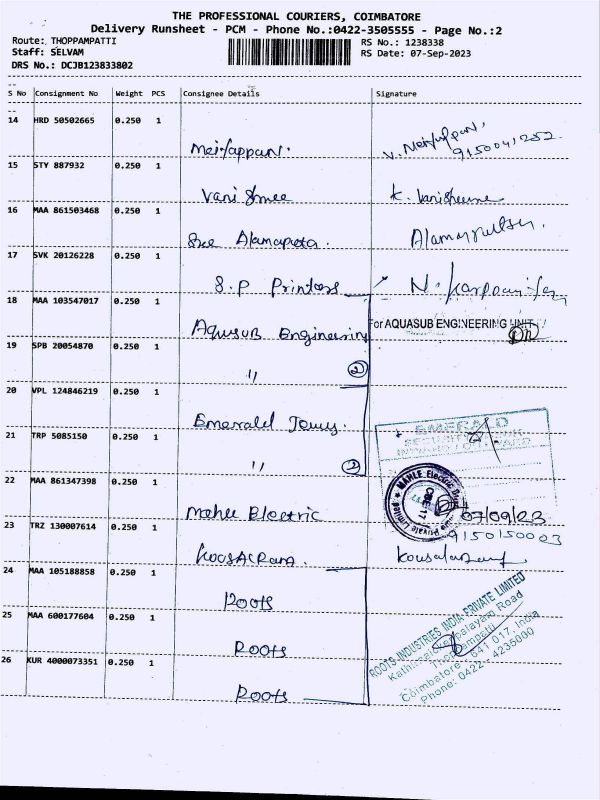 THE PROFESSIONAL COURIERS, COIMBATORE
Delivery Runsheet - PCM - Phone No.:0422-3505555 - Page No.:2
Route: THOPPAMPATTI RS No.: 1238338
Staff: SELVAM RS Date: 07-Sep-2023
DRS No.: DCJB123833802
S No Consignment No Weight PCS Consignee Details Signature
14 HRD 50502665 0.250 1
Meiyappan. V. Meiyappan.
9150041252.
15 STY 887932 0.250 1
Vani Shree K. Vanishree
16 MAA 861503468 0.250 1
Sree
17 SVK 20126228 0.250 1
S.P Printers N.
18 MAA 103547017 0.250 1
Aquasub Engineering For AQUASUB ENGINEERING UNIT
19 SPB 20054870 0.250 1
11 2
20 VPL 124846219 0.250 1
Emerald EMERALD
21 TRP 5085150 0.250 1
11 2
22 MAA 861347398 0.250 1
Mahle Electric MAHLE Electric Private Limited
07/09/23
23 TRZ 130007614 0.250 1
9150150003
24 MAA 105188858 0.250 1
Roots
25 MAA 600177604 0.250 1
Roots
26 KUR 4000073351 0.250 1
Roots
ROOTS INDUSTRIES INDIA PRIVATE LIMITED
Road
Thoppampatti
Coimbatore - 641 017. India
Phone: 0422 - 4235000